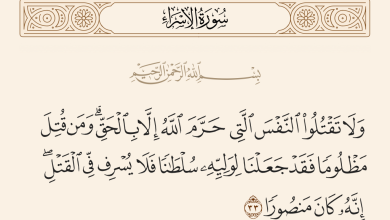 سُورَةُ الإِسْرَاءِ
بِسْمِ اللَّهِ الرَّحْمَٰنِ الرَّحِيمِ
وَلَا تَقْتُلُوا۟ ٱلنَّفْسَ ٱلَّتِى حَرَّمَ ٱللَّهُ إِلَّا بِٱلْحَقِّ ۗ وَمَن قُتِلَ
مَظْلُومًا فَقَدْ جَعَلْنَا لِوَلِيِّهِۦ سُلْطَـٰنًا فَلَا يُسْرِف فِّى ٱلْقَتْلِ ۖ
إِنَّهُۥ كَانَ مَنصُورًا ٣٣